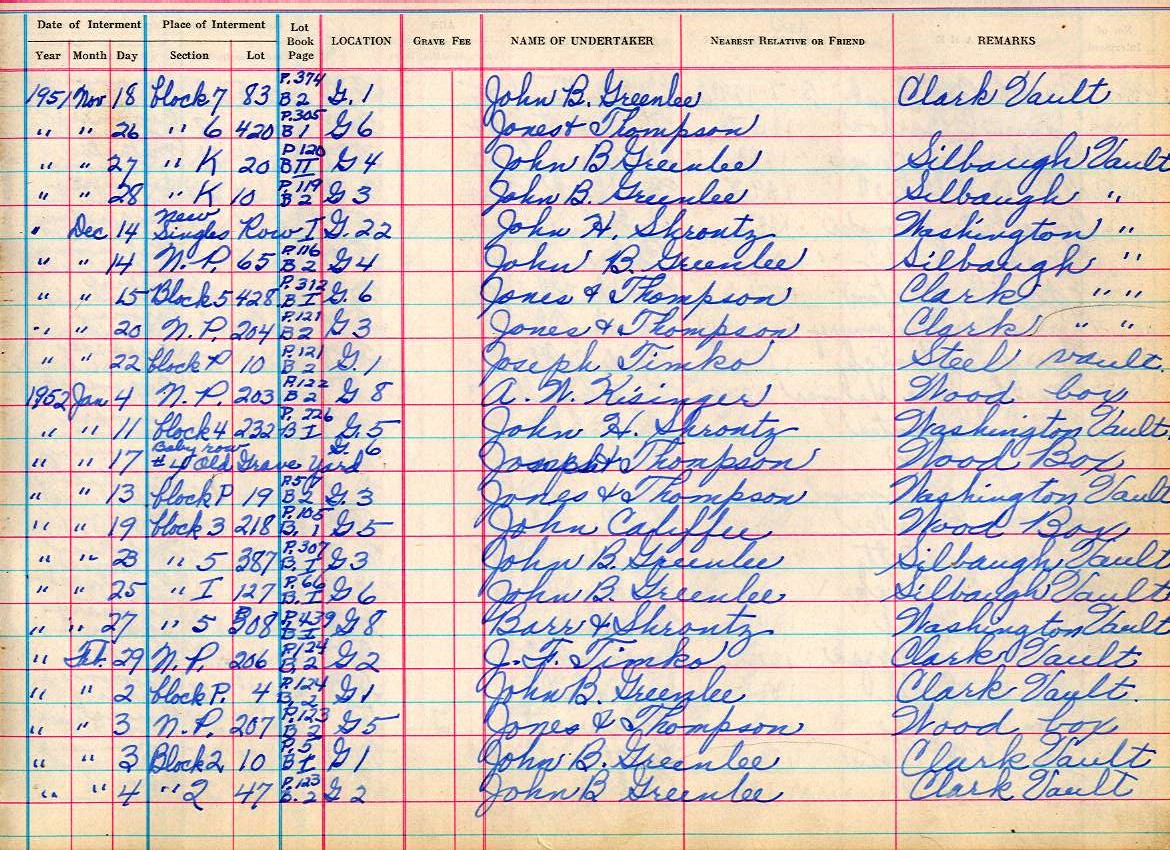 Date of Interment Place of Interment Lot Book Page LOCATION GRAVE FEE NAME OF UNDERTAKER NEAREST RELATIVE OR FRIEND REMARKS
Year Month Day Section Lot
1951 Nov 18 block 7 83 P. 374 B 2 G. 1 John B. Greenlee Clark Vault
" " 26 " 6 420 P. 305 B 1 G 6 Jones & Thompson
" " 27 " K 20 P 120 B II G 4 John B Greenlee Silbaugh Vault
" " 28 " K 10 P. 119 B 2 G 3 John B. Greenlee Silbaugh "
" Dec 14 New Singles Row I G. 22 John H. Shrontz Washington "
" " 14 N. P. 65 P. 116 B 2 G 4 John B. Greenlee Silbaugh "
" " 15 Block 5 428 P. 312 B I G. 6 Jones & Thompson Clark " "
" " 20 N. P. 204 P. 121 B 2 G 3 Jones & Thompson Clark " "
" " 22 block P 10 P. 121 B 2 G. 1 Joseph Timko Steel vault.
1952 Jan 4 N. P. 203 P. 122 B 2 G 8 A. N. Kisinger Wood box
" " 11 block 4 232 P. 226 B I G. 5 John H. Shrontz Washington Vault.
" " 17 Baby row #4 Old Grave Yard G. 6 Thompson Wood Box
" " 13 block P 19 B 2 G 3 Jones & Thompson Washington Vault
" " 19 block 3 218 P. 105 B. 1 G 5 John Wood Box
" " 23 " 5 387 P. 307 B. I G 3 John B. Greenlee Silbaugh Vault
" " 25 " I 127 P. 66 B. I G 6 John B Greenlee Silbaugh Vault
" " 27 " 5 308 P. 439 B I G 8 Barr & Shrontz Washington Vault
" 29 N. P. 206 P. 124 B. 2 G 2 J. F. Timko Clark Vault
" " 2 block P. 4 P. 124 B. 2 G 1 John B. Greenlee Clark Vault.
" " 3 N. P. 207 P. 123 B 2 G 5 Jones & Thompson Wood box
" " 3 Block 2 10 P. 5 B I G 1 John B. Greenlee Clark Vault
" " 4 " 2 47 P. 123 B. 2 G 2 John B Greenlee Clark Vault